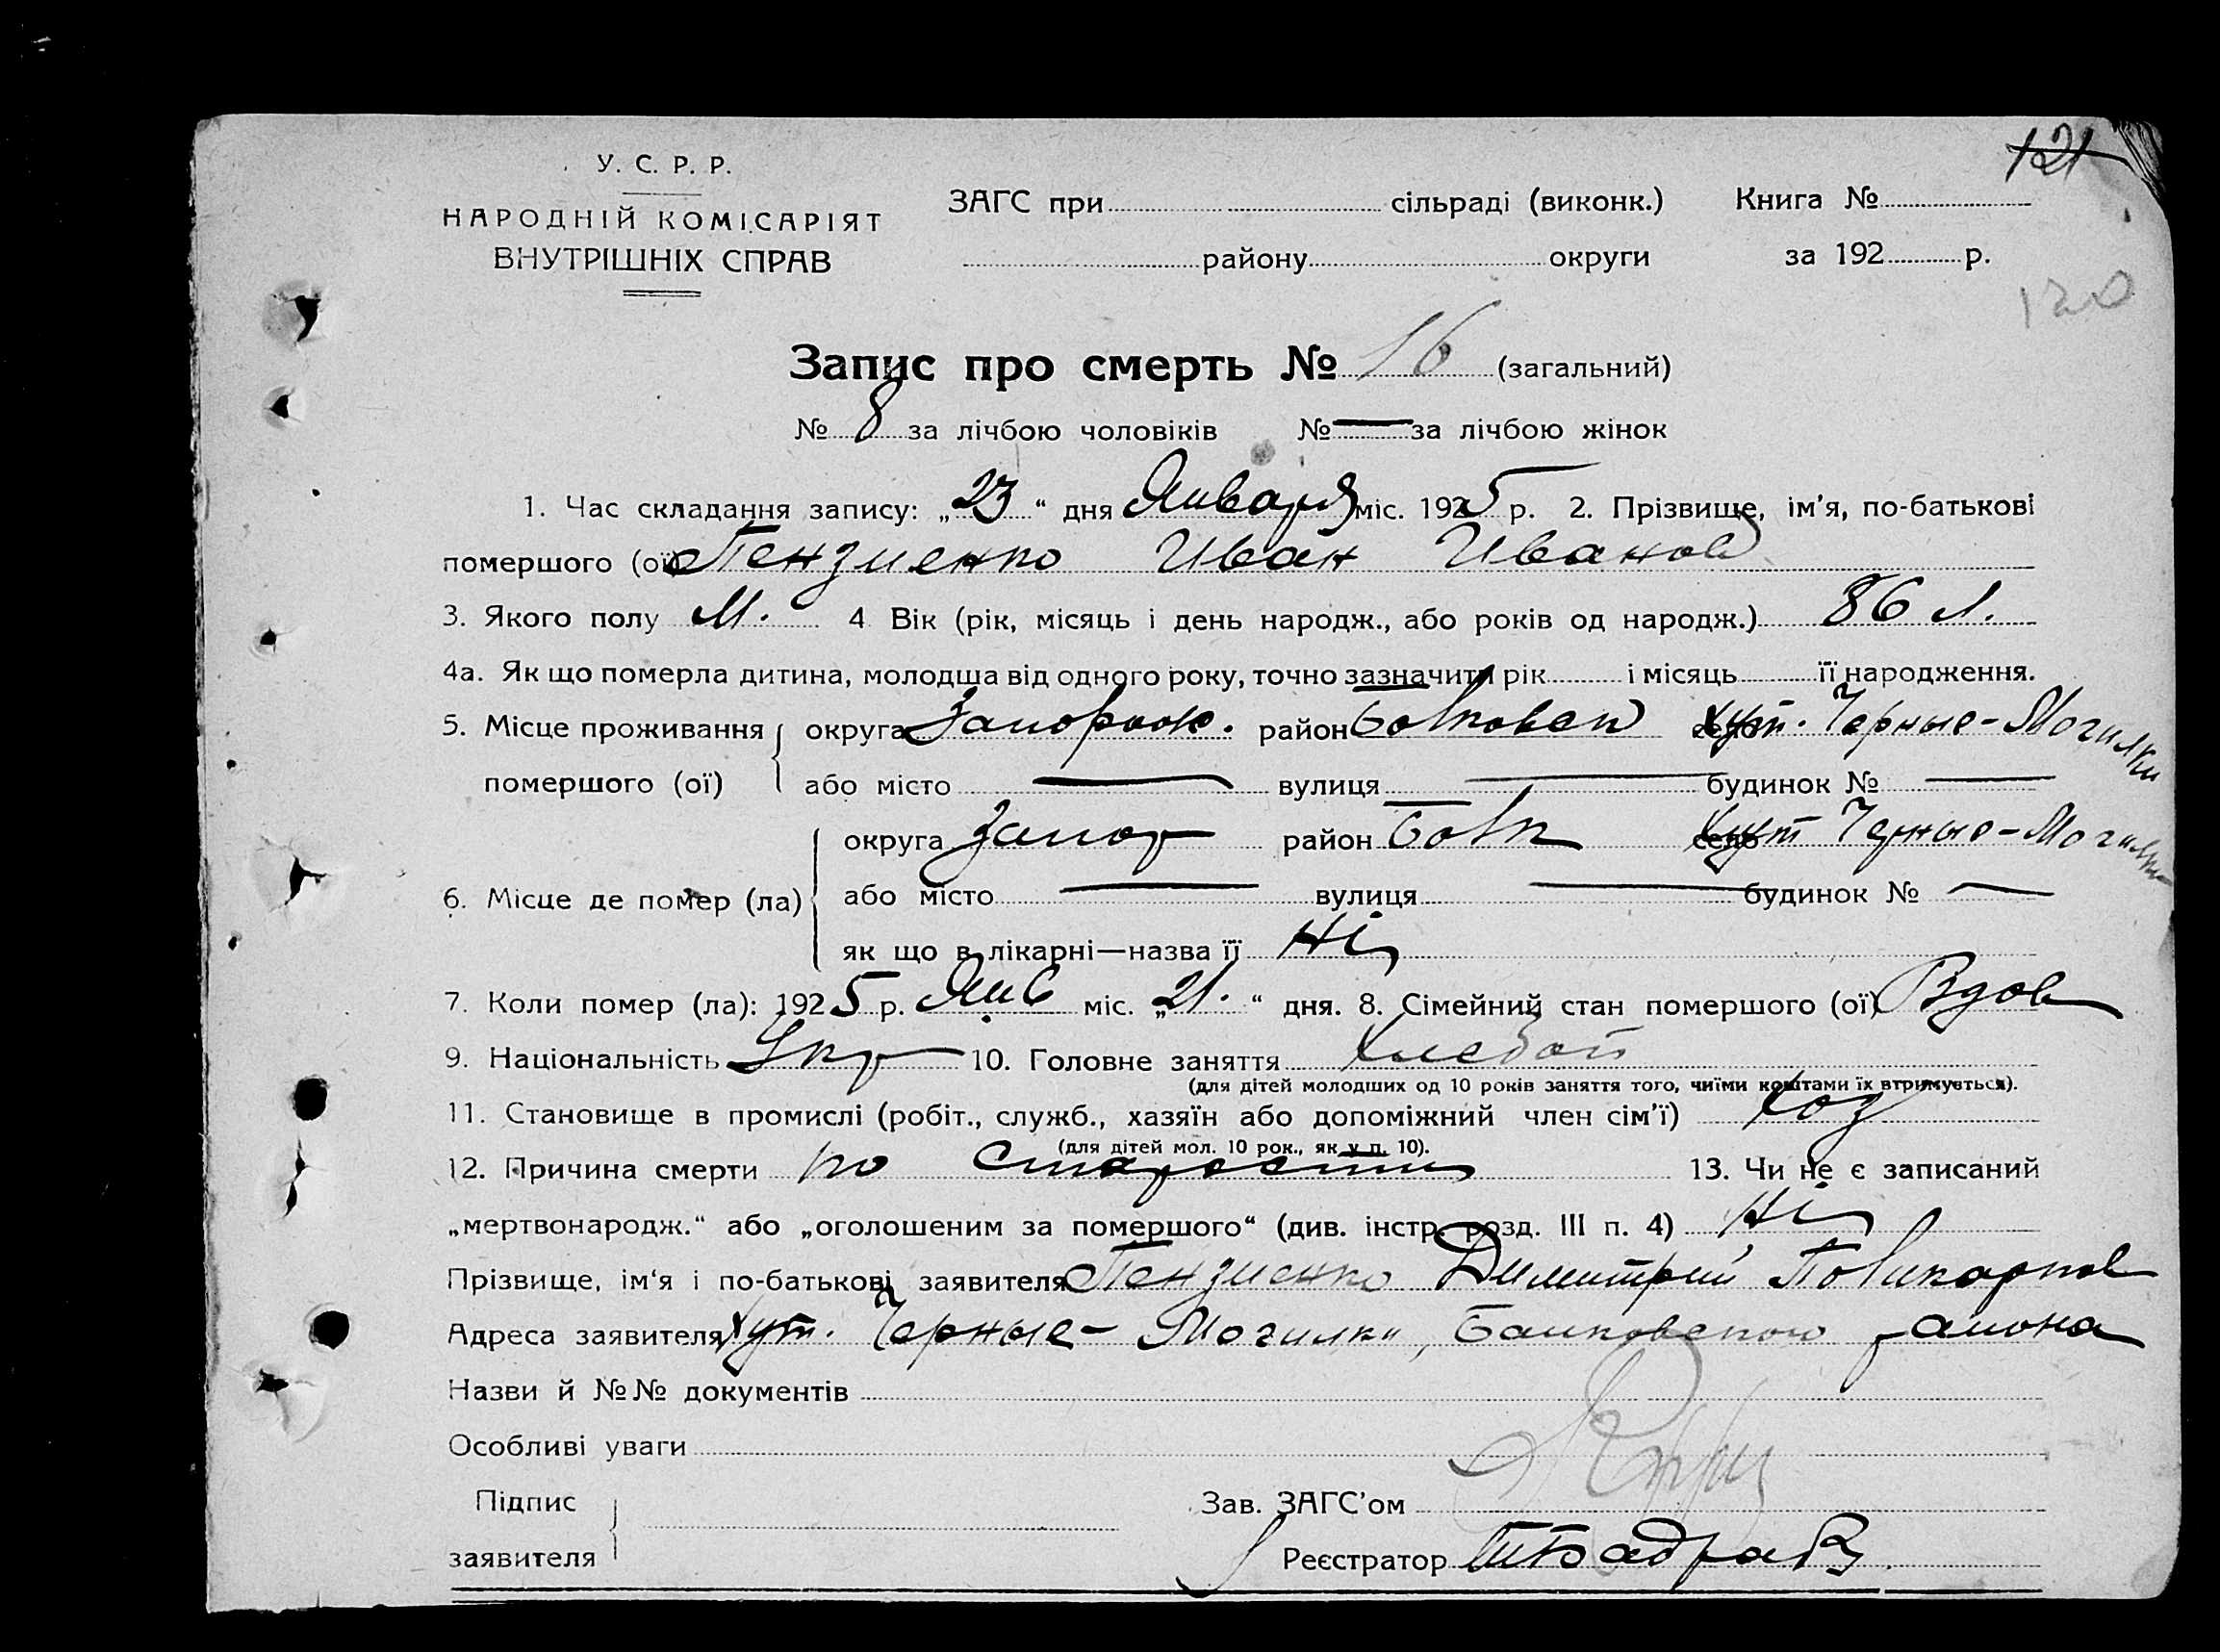 121
У. С. Р. Р.
НАРОДНІЙ КОМІСАРІЯТ
ВНУТРІШНІХ СПРАВ
ЗАГС при сільраді (виконк.) Книга №
району округи за 192 р.
120
Запис про смерть № 16 (загальний)
№ 8 за лічбою чоловіків № — за лічбою жінок
1. Час складання запису: „23“ дня Января міс. 1925 р. 2. Прізвище, ім'я, по-батькові
помершого (ої) Пензиенко Иван Иванов
3. Якого полу М. 4 Вік (рік, місяць і день народж., або років од народж.) 86 л.
4а. Як що померла дитина, молодша від одного року, точно зазначити рік і місяць її народження.
5. Місце проживання округа Запорож. район хут. Черные-Могилки
помершого (ої) або місто — вулиця — будинок № —
округа Запор район хут Черные-Могилки
6. Місце де помер (ла) або місто — вулиця — будинок № —
як що в лікарні—назва її Ні
7. Коли помер (ла): 1925 р. Янв міс. „21.“ дня. 8. Сімейний стан помершого (ої) Вдов
9. Національність Укр 10. Головне заняття Хлебоп
(для дітей молодших од 10 років заняття того, чиїми коштами їх втримується).
11. Становище в промислі (робіт., служб., хазяїн або допоміжний член сім'ї) Хоз
(для дітей мол. 10 рок., як у п. 10).
12. Причина смерти по старости 13. Чи не є записаний
„мертвонародж.“ або „оголошеним за помершого“ (див. інстр. розд. III п. 4) Ні
Прізвище, ім'я і по-батькові заявителя Пензиенко Димитрий Поликарпов
Адреса заявителя хут. Черные-Могилки, района
Назви й №№ документів
Особливі уваги
Підпис
Зав. ЗАГС'ом
заявителя Реєстратор